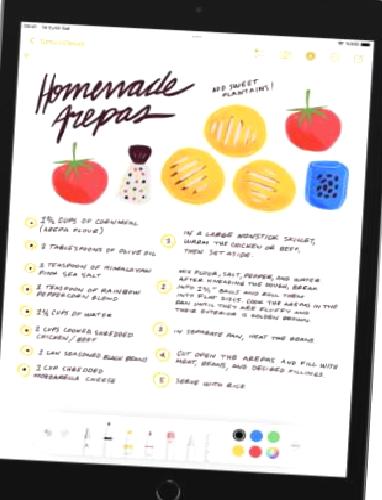 Homemade
Arepas
ADD SWEET
PLANTAINS!
1¾ CUPS OF CORNMEAL
(AREPA FLOUR)
3 TABLESPOONS OF OLIVE OIL
1 TEASPOON OF HIMALAYAN
PINK SEA SALT
1 TEASPOON OF RAINBOW
PEPPERCORN BLEND
CUPS OF WATER
2 CUPS COOKED SHREDDED
CHICKEN / BEEF
1 CAN SEASONED BLACK BEANS
1 CUP SHREDDED
MOZZARELLA CHEESE
1 IN A LARGE NONSTICK SKILLET,
WARM THE CHICKEN OR BEEF,
THEN SET ASIDE.
2 MIX FLOUR, SALT, PEPPER, AND WATER
AFTER KNEADING THE DOUGH, BREAK
INTO BALLS AND ROLL THEM
INTO FLAT DISCS. COOK THE AREPAS IN THE
PAN UNTIL THEY ARE FLUFFY AND
THEIR EXTERIOR IS GOLDEN BROWN.
3 IN SEPARATE PAN, HEAT THE BEANS.
4 CUT OPEN THE AREPAS AND FILL WITH
MEAT, BEANS, AND DESIRED FILLINGS.
5 SERVE WITH RICE